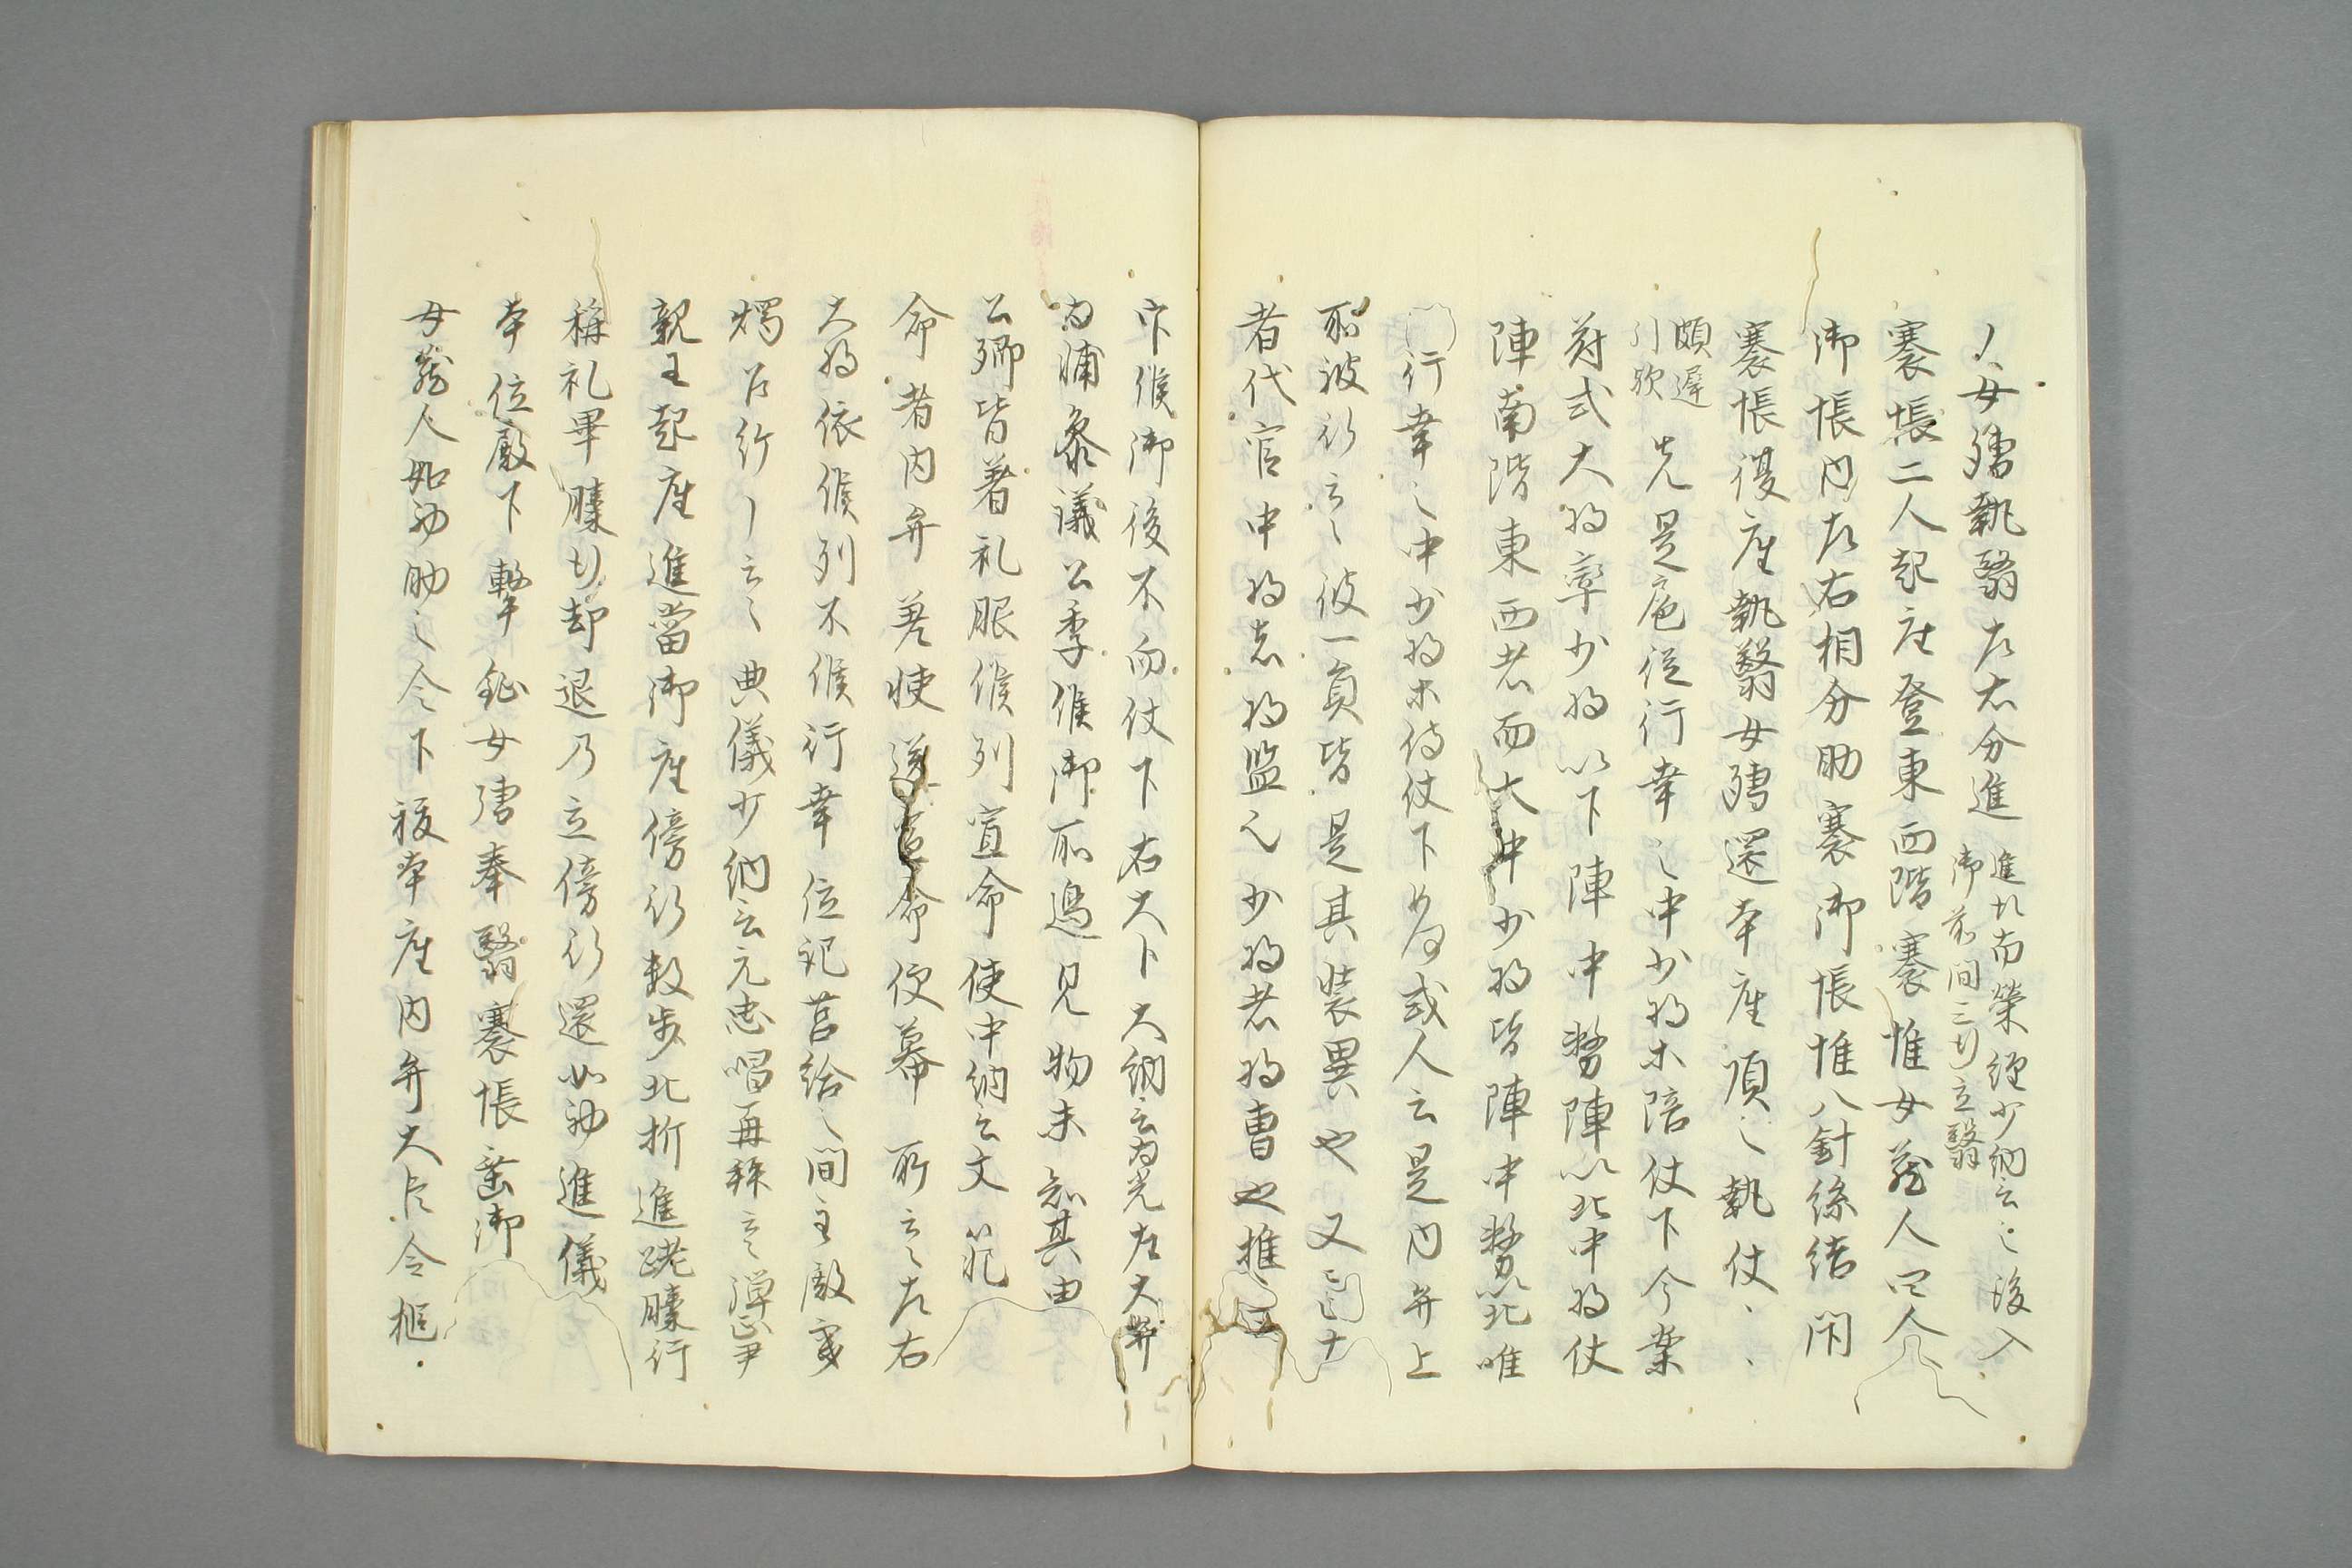 人女孺執翳左右分進
進自南榮経少納言之後入
御前間三行立翳
褰帳二人起座登東西階褰帷女蔵人四人
御帳内左右相分助褰御帳帷八針絲結閇
褰帳復座執翳女孺還本座頃之執仗、、
頗遅
引歟
先是扈従行幸之中少将等陪仗下今案
式大将率少将以下陣中務陣以北中将仗
陣南階東西者而大中少将皆陣中務以北唯
行幸之中少将等侍仗下如何或人云是内弁上
彼行云々彼一員皆是其装異也又
者代官中将者将監之少将者将曹也推
候御後不向仗下右大 大納言為光左大弁
為浦参議公季候御所邊見物未知其由
公卿皆着礼服候列宣命使中納言文範
命者内弁差使送宣命使幕所云々左右
大将依候列不候行幸位記莒給之間主殿寮
燭 行 云々典儀少納言元忠唱再拝云々弾正尹
親王起座進當御座傍行数歩北折進跪膝行
稱礼畢膝行却退乃立傍行還如初進儀
本位殿下撃鉦女孺奉翳褰帳垂御
女蔵人如初助之令下複本座内弁大臣令